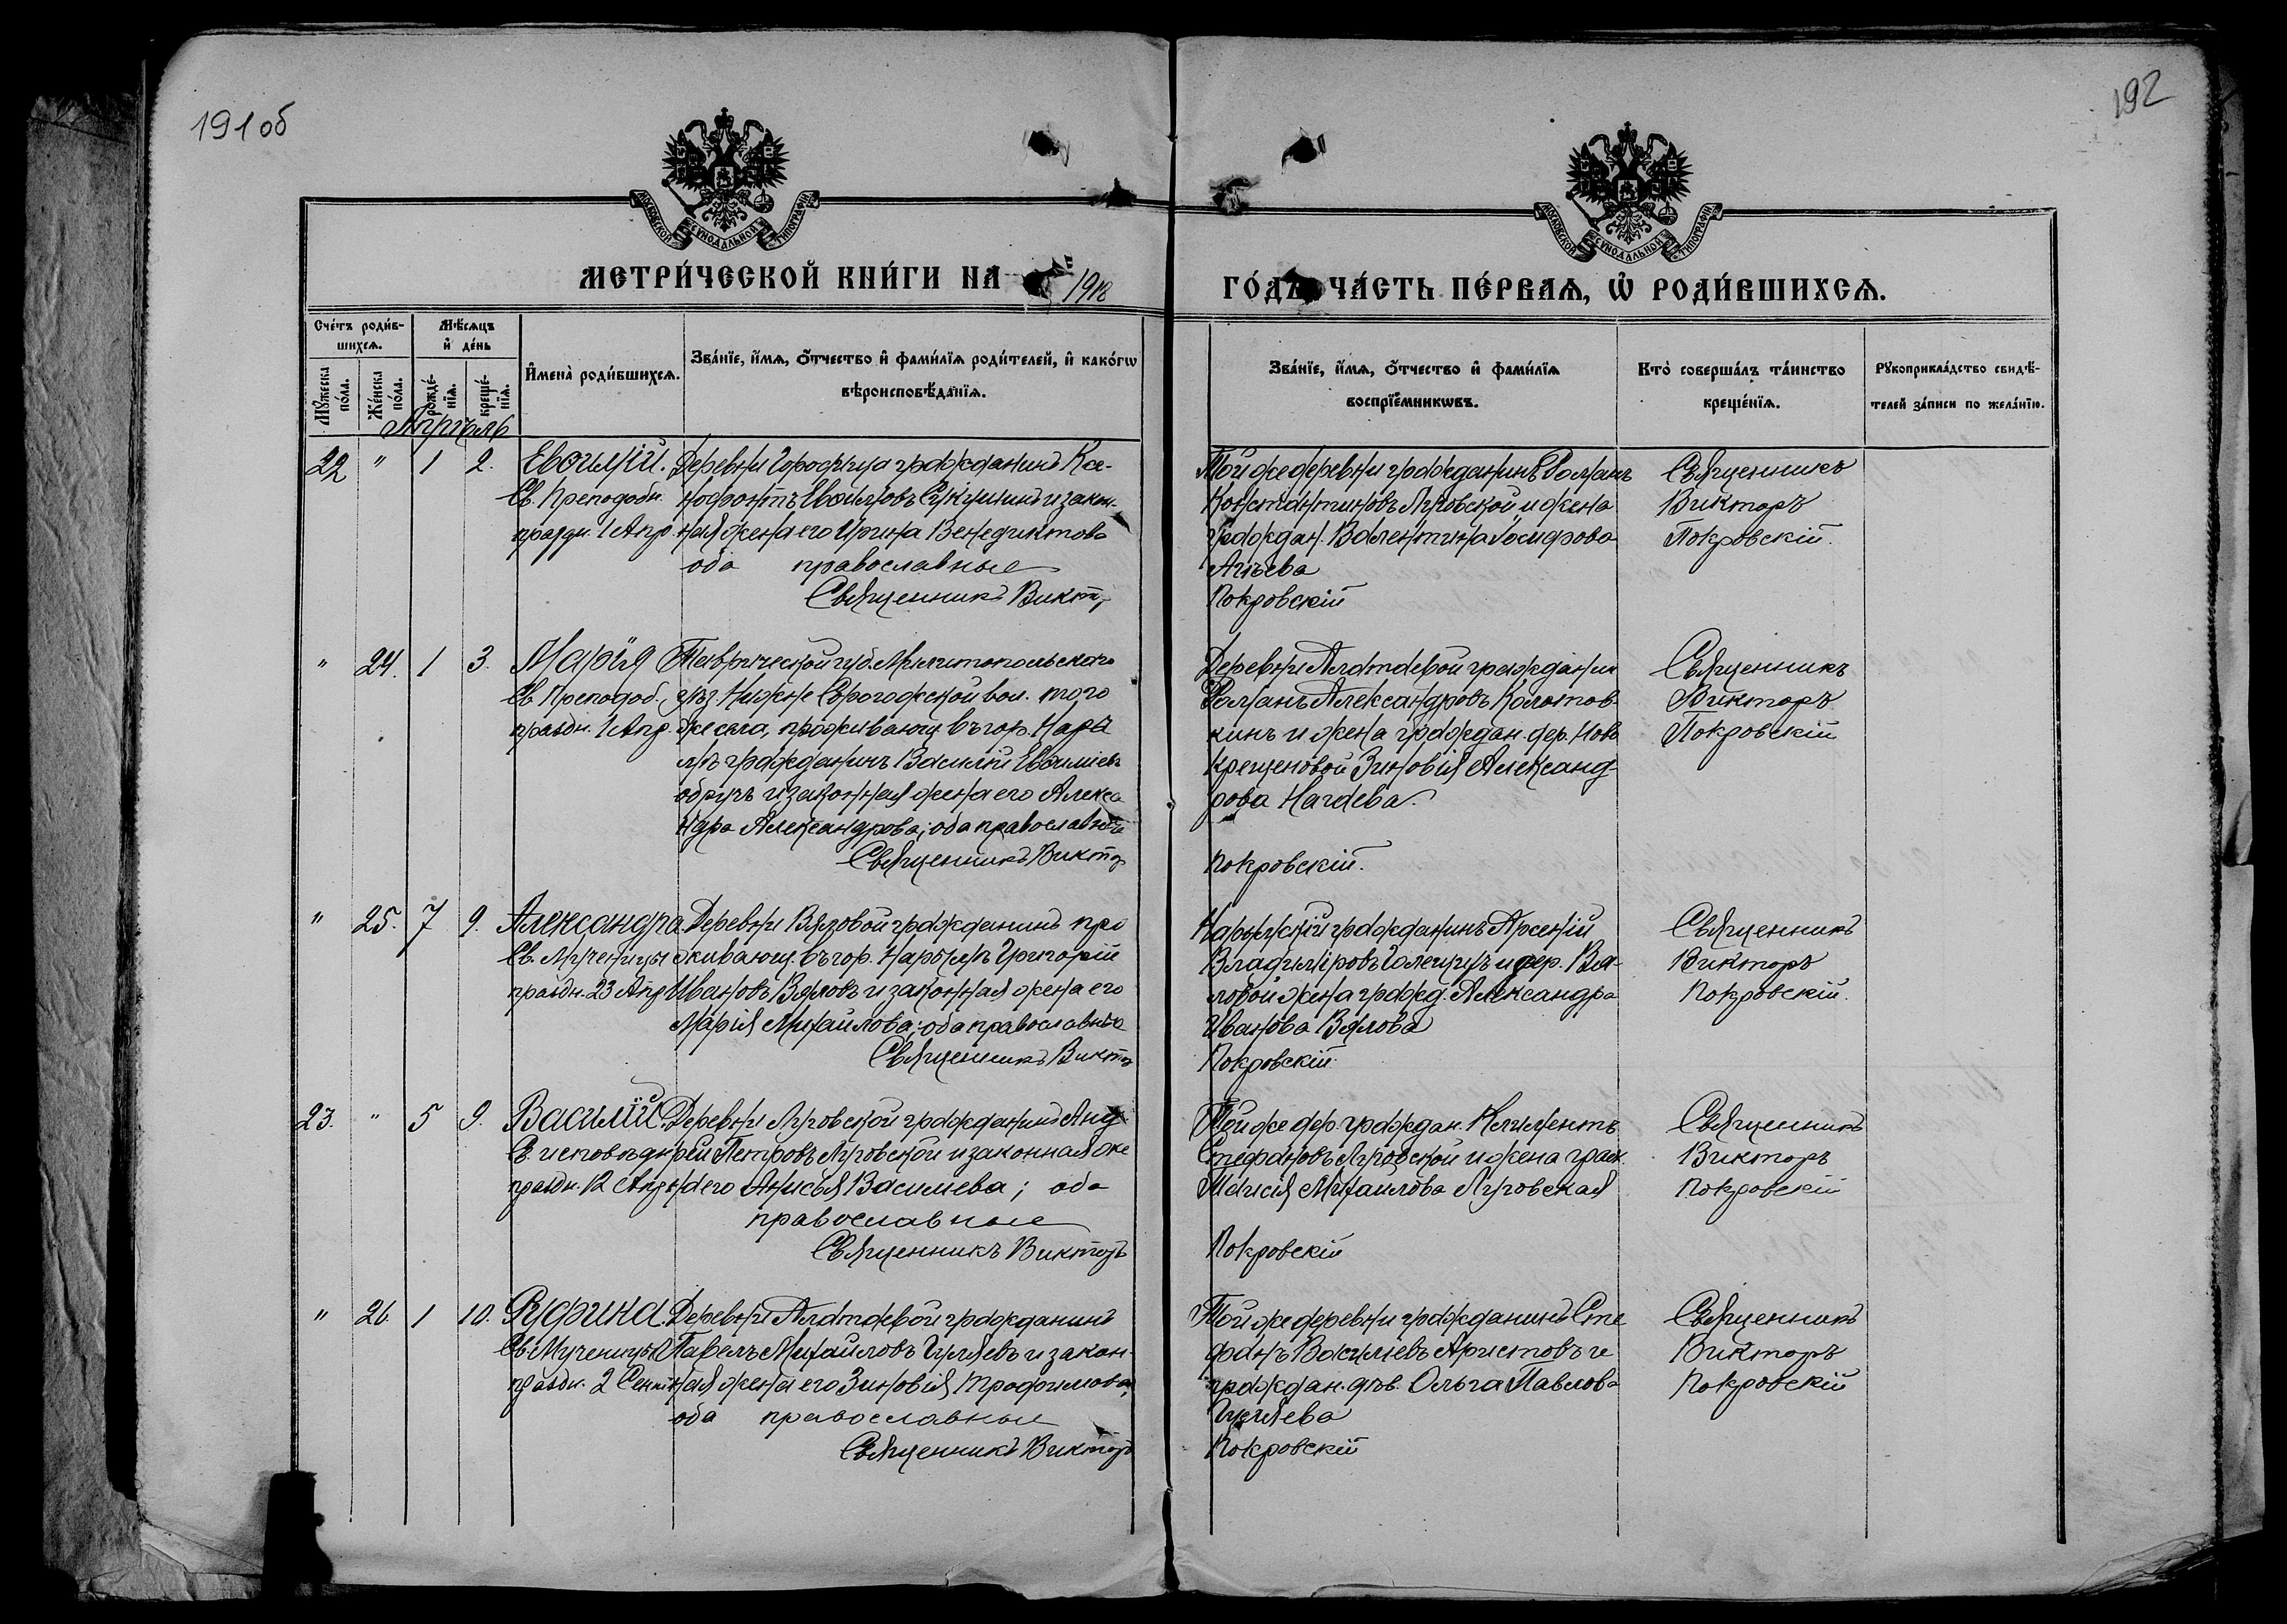 191об
192
МОСКОВСКОЙ СѴНОДАЛЬНОЙ ТИПОГРАФІИ
МОСКОВСКОЙ СѴНОДАЛЬНОЙ ТИПОГРАФІИ
МЕТРИ́ЧЕСКОЙ КНИ́ГИ НА 1918
ГО́ДЪ ЧА́СТЬ ПЕ́РВАѦ, Ѡ҆ РОДИ́ВШИХСѦ.
Сче́тъ роди́в-
шихсѧ.
Мꙋ́жеска по́ла.
Же́нска по́ла.
Мѣ́сѧцъ
и҆ де́нь
рожде́-
нїѧ.
креще́-
нїѧ.
И҆мена̀ роди́вшихсѧ.
Зва́нїе, и҆́мѧ, ѻ҆́тчество и҆ фами́лїѧ роди́телей, и҆ како́гѡ
вѣроисповѣ́данїѧ.
Зва́нїе, и҆́мѧ, ѻ҆́тчество и҆ фами́лїѧ
воспрїе́мникѡвъ.
Кто̀ соверша́лъ та́инство
креще́нїѧ.
Рꙋкоприкла́дство свидѣ́-
телей за́писи по жела́нїю.
Апрѣль
22 " 1 2. Евѳимій.
Св. Преподобн.
праздн. 1 Апр.
Деревни Городища гражданинъ Ка-
нная жена его Ирина Венедиктова
оба православные
Священникъ Викт,
Той же деревни гражданинъ Романъ
Константиновъ Луговской и жена
граждан. Валентина
Покровскій
Священникъ
Викторъ
Покровскій.
" 24. 1 3. Марія
Св. Преподоб.
праздн. 1 Апр.
Таврической губ. Мелитопольскаго
уѣз. Нижне Сѣрогожской вол. того
же села, проживающ. въ гор. Нары
мѣ гражданинъ Василій Евѳиміевъ
и законная жена его Алекса
ндра Александрова; оба православные
Священникъ Виктор
Деревни Алатаевой гражданин
Романъ Александровъ Колотов-
кинъ и жена граждан. дер. Ново
крещеновой Зиновія Александ-
рова Нагаева.
Покровскій.
Священникъ
Викторъ
Покровскій
" 25. 7 9. Александра.
Св. Мученицы
праздн. 23 Апр
Деревни Вяловой гражданинъ про
живающ. въ гор. Нарымѣ Григорій
Ивановъ Вяловъ и законная жена его
Марія Михайлова; оба православные
Священникъ Виктор
Нарымскій гражданинъ Арсеній
Владиміровъ Голещихъ и дер. Вя-
ловой жена гражд. Александра
Иванова Вялова
Покровскій.
Священникъ
Викторъ
Покровскій.
23. " 5 9. Василій.
Св. исповѣдн
праздн. 12 Апр
Деревни Луговской гражданинъ Анд
рей Петровъ Луговской и законная же
на его Анисья Васильева; оба
православные
Священникъ Викторъ
Той же дер. граждан. Климентъ
Стефановъ Луговской и жена граж.
Таисія Михайлова Луговская
Покровскій
Священникъ
Викторъ
Покровскій
" 26. 1 10. Руфина.
Св. Мученицы
праздн. 2 Сент
Деревни Алатаевой гражданинъ
Павелъ Михайловъ Гуляевъ и закон-
ная жена его Зиновія Трофимова,
оба православные
Священникъ Викторъ
Той же деревни гражданинъ Сте
фанъ Васильевъ Аристовъ и
граждан. дѣв. Ольга Павлова
Гуляева
Покровскій
Священникъ
Викторъ
Покровскій